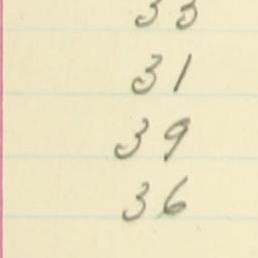 33
31
39
36